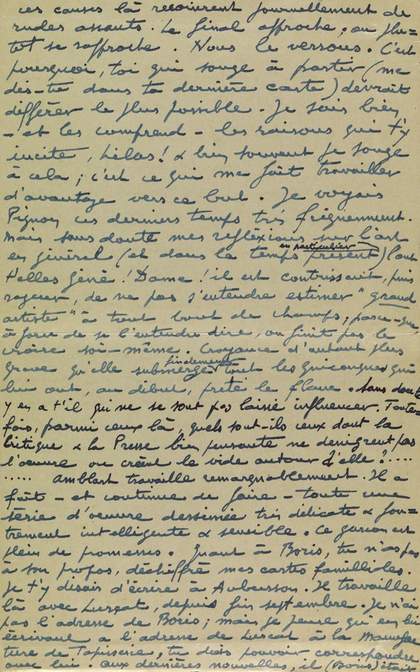 ces causes là reçoivent journellement de
rudes assauts. Le final approche, ou plu-
tôt se rapproche. Nous le verrons. C'est
pourquoi, toi qui songe à partir (me
dis-tu dans ta dernière carte) devrait
différer le plus possible. Je sais bien
- et les comprend - les raisons qui t'y
incite, hélas! & bien souvent je songe
à cela; c'est ce qui me fait travailler
d'avantage vers ce but. Je voyais
Pignon ces derniers temps très fréquemment.
Mais sans doute mes reflexions sur l'art
en général (et dans le temps présent en particulier) l'ont
elles gêné! Dame! il est
de ne pas s'entendre estimer "grand
artiste" à tout bout de champs, parce-que
à force de se l'entendre dire, on finit pas le
croire soi-même. Croyance d'autant plus
grave qu'elle submerge finalement tout les quiconques qui
lui ont, au début, prêté le flanc. Sans doute
y en a t'il qui ne se sont pas laissé influencer. Toute-
fois, parmi ceux là, quels sont-ils ceux dont la
critique & la Presse bien pensante ne dénigrent pas
l'oeuvre ou créent le vide autour d'elle?....
..... Amblart travaille remarquablement. Il a
fait - et continue de faire - toute une
série d'oeuvre dessinée très délicate & fon-
trement intelligente & sensible. Ce garçon est
plein de promesses. Quant à Boris, tu n'as pas
à son propos, déchiffré mes cartes familliales.
Je t'y disais d'écrire à Aubusson. Il travaille
là avec Lurçat, depuis fin septembre. Je n'ai
pas l'adresse de Boris; mais je pense qu'en lui
écrivant a l'adresse de Lurçat à la Manufac-
ture de Tapisserie, tu dois pouvoir correspondre
avec lui. Aux dernières nouvelles, il (Boris)